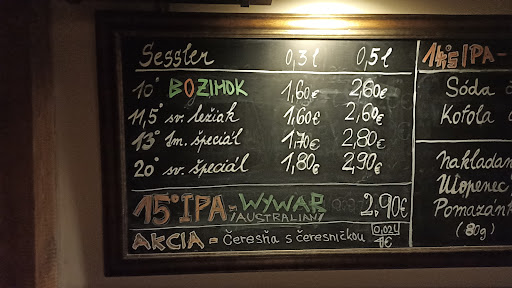 Sessler 0,3 l 0,5 l
10° BOZIMOK 1,60€ 2,60€
11,5° sv. ležiak 1,60€ 2,60€
13° tm. špeciál 1,70€ 2,80€
20° sv. špeciál 1,80€ 2,90€
15° IPA - WYWAR 2,90€
/AUSTRALIAN/
AKCIA = Čerešňa s čerešničkou 0,02l
1€
IPA -
Sóda
Kofola
Nakladan
Utopenec
Pomazánk
(80g)